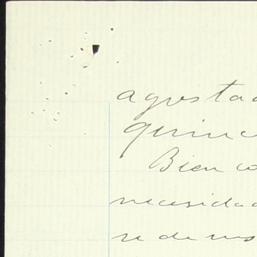 agosta
quince
Bien co
necesidad
se de nos